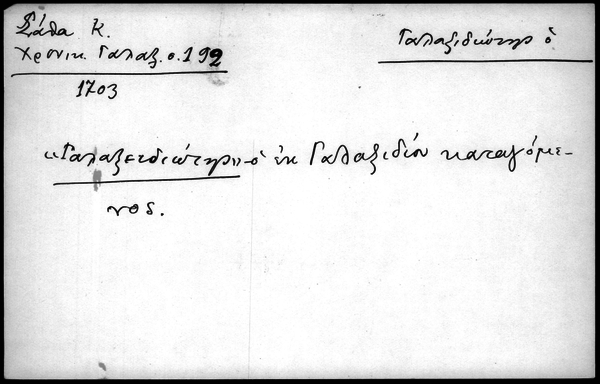 Σάθα Κ.
Χρονικ. Γαλαξ. σ. 192
Γαλαξιδιώτης ὁ
1703
«Γαλαξειδιώτης» ὁ ἐκ Γαλαξιδίου καταγόμε-
νος.